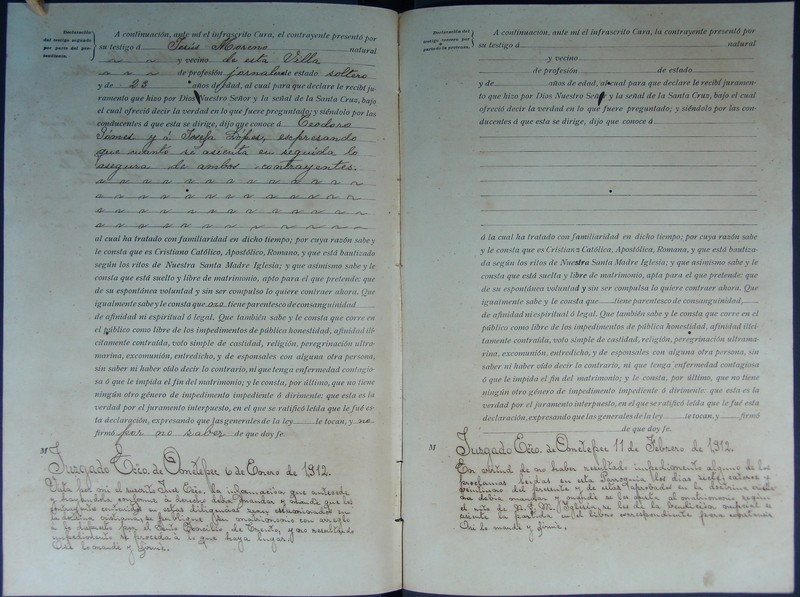 Declaración
del testigo segundo
por parte del pre-
tendiente.
A continuación, ante mí el infrascrito Cura, el contrayente presentó por
su testigo á Jesús Moreno natural
y vecino de esta Villa
de profesión jornalero de estado soltero
y de 23 años de edad, al cual para que declare le recibí ju-
ramento que hizo por Dios Nuestro Señor y la señal de la Santa Cruz, bajo
el cual ofreció decir la verdad en lo que fuere preguntado; y siéndolo por las
conducentes á que esta se dirige, dijo que conoce á Teodoro
Gómez y á Josefa López, expresando
que cuanto se asienta en seguida lo
asegura de ambos contrayentes.
al cual ha tratado con familiaridad en dicho tiempo; por cuya razón sabe y
le consta que es Cristiano Católico, Apostólico, Romano, y que está bautizado
según los ritos de Nuestra Santa Madre Iglesia; y que asimismo sabe y le
consta que está suelto y libre de matrimonio, apto para el que pretende: que
de su espontánea voluntad y sin ser compulso lo quiere contraer ahora. Que
igualmente sabe y le consta que no tiene parentesco de consanguinidad
de afinidad ni espiritual ó legal. Que también sabe y le consta que corre en
el público como libre de los impedimentos de pública honestidad, afinidad ilí-
citamente contraída, voto simple de castidad, religión, peregrinación ultra-
marina, excomunión, entredicho, y de esponsales con alguna otra persona,
sin saber ni haber oído decir lo contrario, ni que tenga enfermedad contagio-
sa ó que le impida el fin del matrimonio; y le consta, por último, que no tiene
ningún otro género de impedimento impediente ó dirimente: que esta es la
verdad por el juramento interpuesto, en el que se ratificó leída que le fué es-
ta declaración, expresando que las generales de la ley le tocan, y no
firmó por no saber de que doy fe.
M
Juzgado Ecco. de Ometepec 6 de Enero de 1912.
Vista por mí el presente Juez Ecco. la información que antecede
y hallándola conforme á derecho debía mandar y mandé que los
contrayentes contenidos en estas diligencias sean examinados en
la doctrina cristiana, se publique su matrimonio con arreglo
á lo dispuesto por el Sto. Concilio de Trento, y no resultando
impedimento se proceda á lo que haya lugar.
Así lo mandé y firmé.
Declaración del
testigo tercero por
parte de la pretensa.
A continuación, ante mí el infrascrito Cura, la contrayente presentó por
su testigo á natural
y vecino
de profesión de estado
y de años de edad, al cual para que declare le recibí juramen-
to que hizo por Dios Nuestro Señor y la señal de la Santa Cruz, bajo el cual
ofreció decir la verdad en lo que fuere preguntado; y siéndolo por las con-
ducentes á que esta se dirige, dijo que conoce á
á la cual ha tratado con familiaridad en dicho tiempo; por cuya razón sabe
y le consta que es Cristiana Católica, Apostólica, Romana, y que está bautiza-
da según los ritos de Nuestra Santa Madre Iglesia; y que asimismo sabe y le
consta que está suelta y libre de matrimonio, apta para el que pretende: que
de su espontánea voluntad y sin ser compulsa lo quiere contraer ahora. Que
igualmente sabe y le consta que tiene parentesco de consanguinidad,
de afinidad ni espiritual ó legal. Que también sabe y le consta que corre en el
público como libre de los impedimentos de pública honestidad, afinidad ilíci-
tamente contraída, voto simple de castidad, religión, peregrinación ultrama-
rina, excomunión, entredicho, y de esponsales con alguna otra persona, sin
saber ni haber oído decir lo contrario, ni que tenga enfermedad contagiosa
ó que le impida el fin del matrimonio; y le consta, por último, que no tiene
ningún otro género de impedimento impediente ó dirimente: que esta es la
verdad por el juramento interpuesto, en el que se ratificó leída que le fué esta
declaración, expresando que las generales de la ley le tocan, y firmó
de que doy fe.
M
Juzgado Ecco. de Ometepec 11 de Febrero de 1912.
En virtud de no haber resultado impedimento alguno de las
proclamas leídas en esta Parroquia los días siete, catorce y
veintiuno del presente y de estar aprobados en la doctrina cristia
na debía mandar y mandé se les asista al matrimonio según
el rito de N. S. M. Iglesia, se les dé la bendición nupcial y
asiente la partida en el libro correspondiente para constancia.
Así lo mandé y firmé.